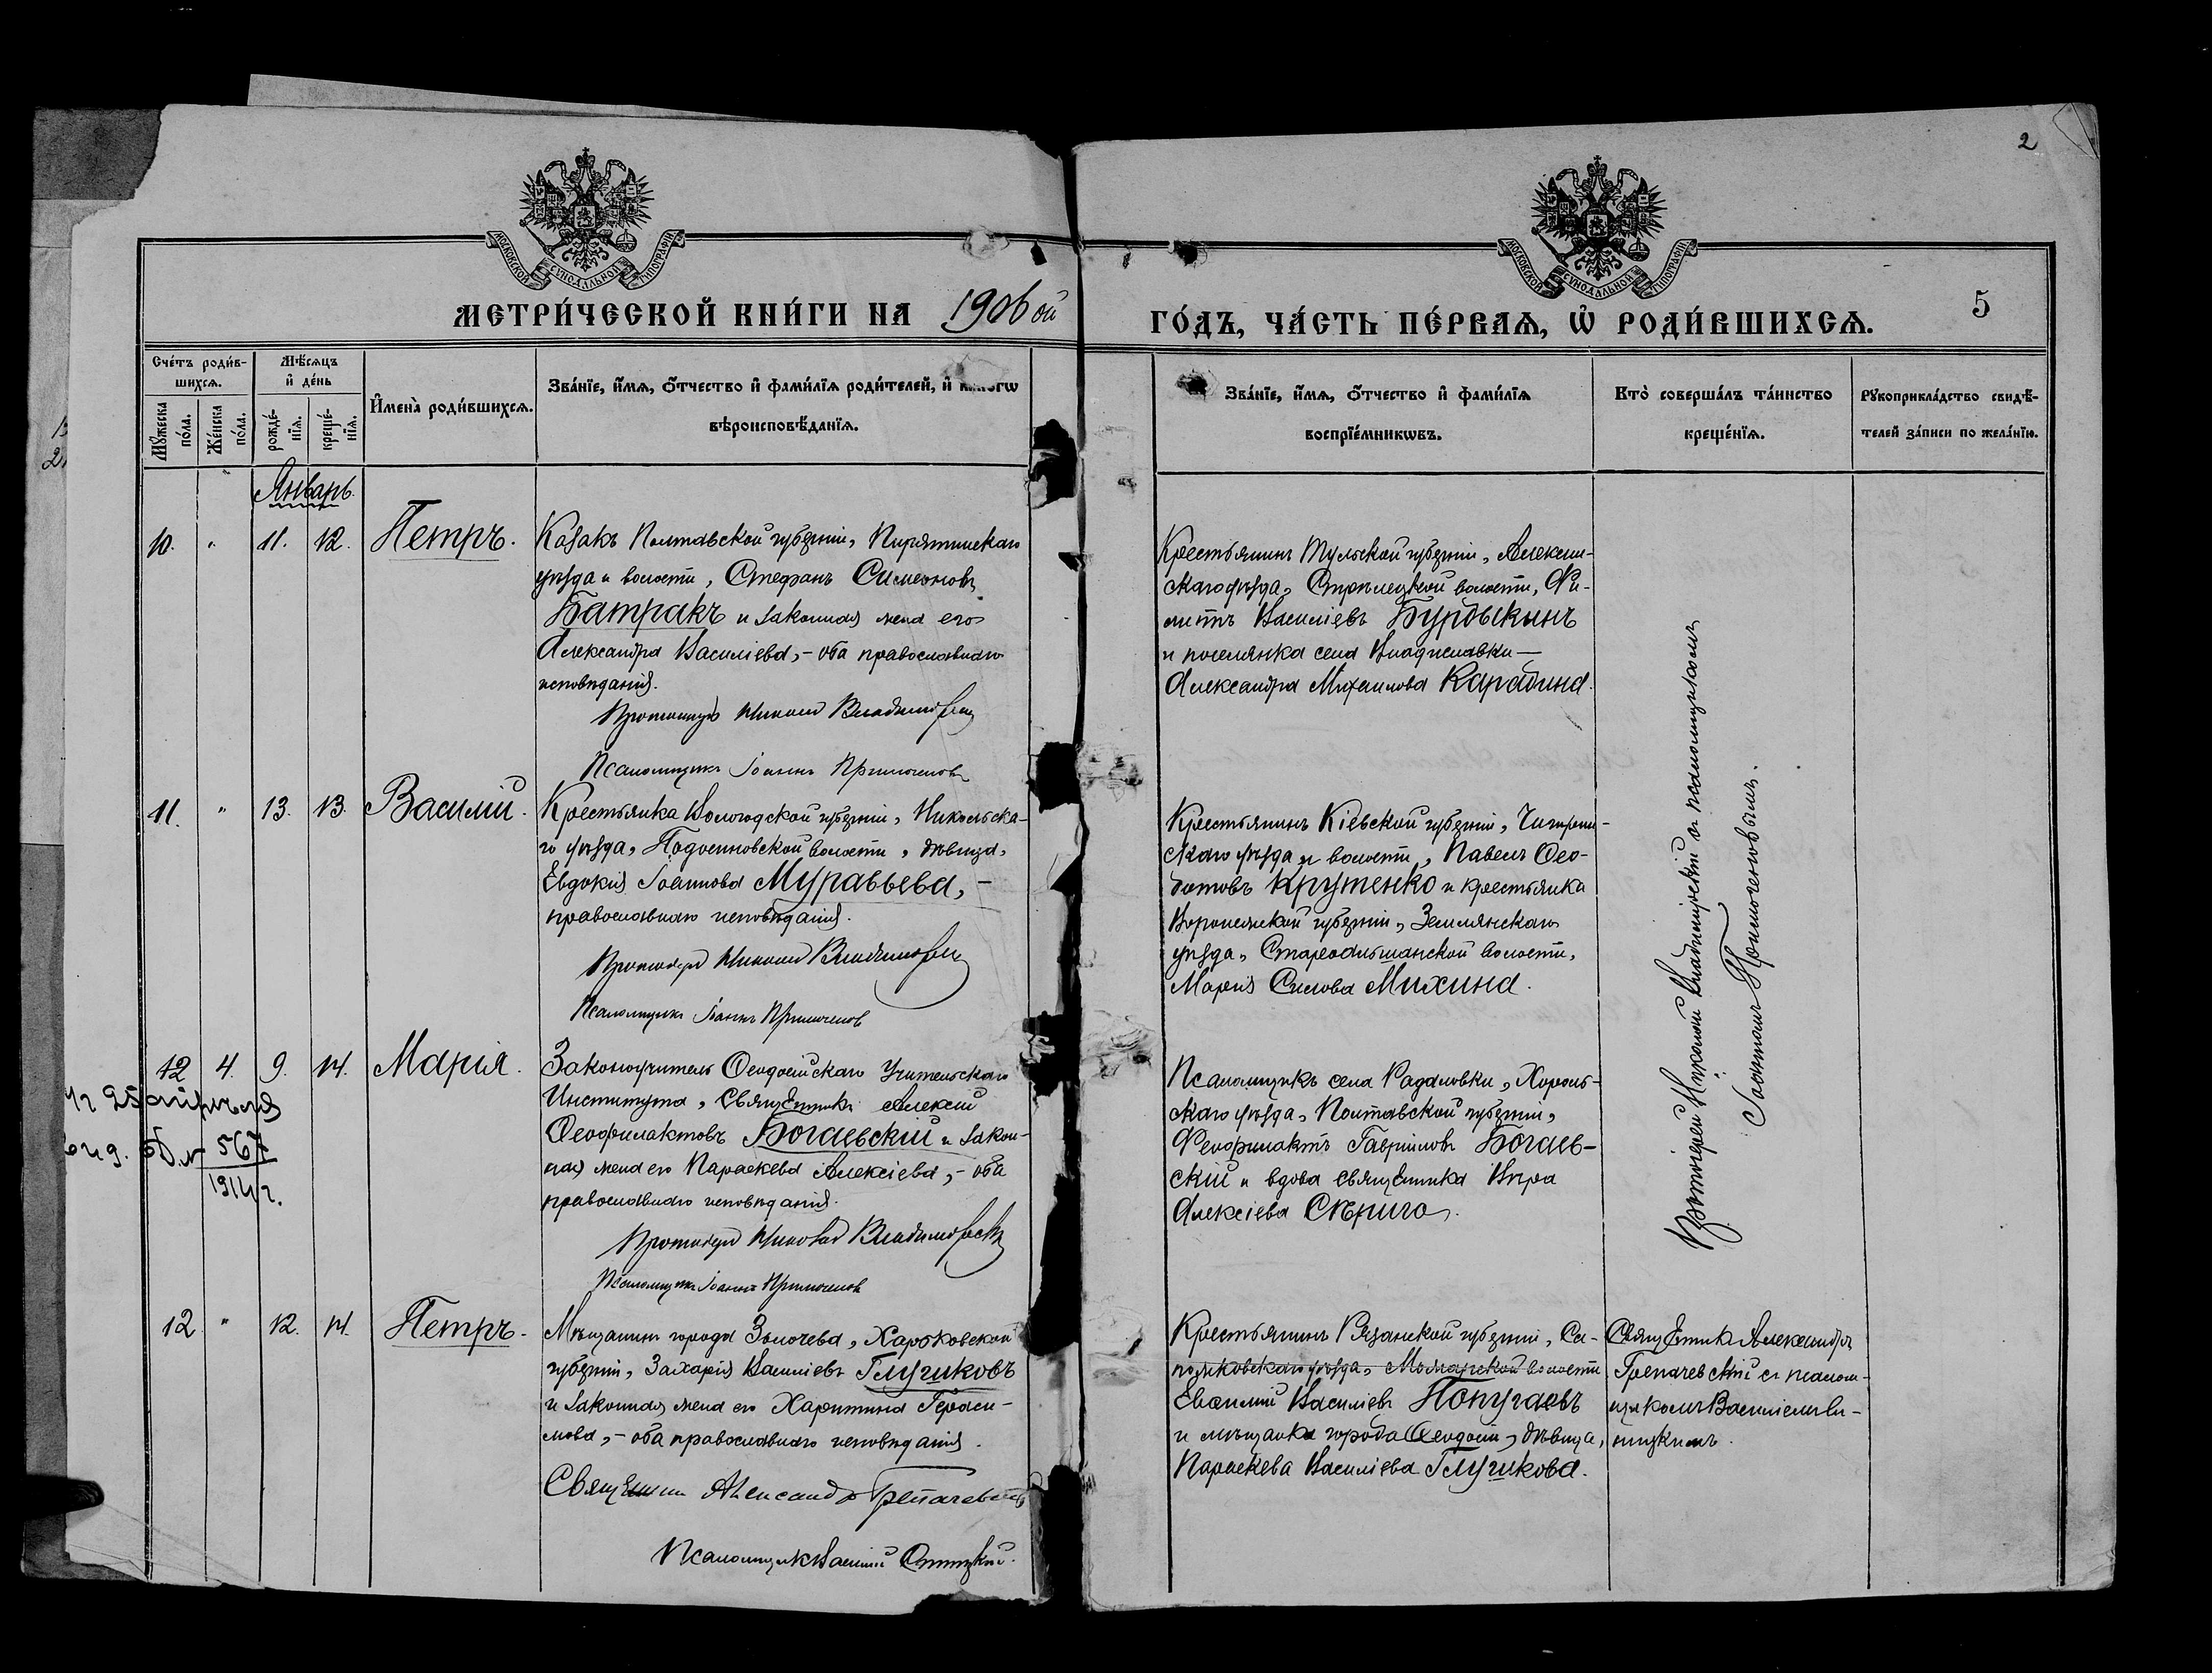 2
МОСКОВСКОЙ СѴНОДАЛЬНОЙ ТИПОГРАФІИ
МОСКОВСКОЙ СѴНОДАЛЬНОЙ ТИПОГРАФІИ
МЕТРИ́ЧЕСКОЙ КНИ́ГИ НА 1906 ой
ГО́ДЪ, ЧА́СТЬ ПЕ́РВАЯ, Ѡ҆ РОДИ́ВШИХСЯ.
5
Сче́тъ роди́в-
шихся.
Мѣ́сяцъ
и҆ де́нь
Мꙋ́жеска по́ла.
Же́нска по́ла.
рожде́-
нїя.
креще́-
нїя.
И҆мена̀ роди́вшихся.
Зва́нїе, и҆́мя, о҆́тчество и҆ фами́лїя роди́телей, и҆
вѣроисповѣ́данїя.
Зва́нїе, и҆́мя, о҆́тчество и҆ фами́лїя
воспрїе́мникѡвъ.
Кто̀ соверша́лъ та́инство
креще́нїя.
Рꙋкоприкла́дство свидѣ́-
телей за́писи по жела́нїю.
Январь.
10. " 11. 12. Петръ.
Казакъ Полтавской губерніи, Пирятинскаго
уѣзда и волости, Стефанъ Симеоновъ
Батракъ и законная жена его
Александра Васильева, - оба православнаго
исповѣданія.
Протоіерей Николай Владимірскій
Псаломщикъ Іоаннъ Примоченовъ
Крестьянинъ Тульской губерніи, Алексин-
скаго уѣзда, Стрѣлецкой волости, Фи-
липпъ Василіевъ
и поселянка села Владиславки —
Александра Михаилова
11. " 13. 13. Василій.
Крестьянка Вологодской губерніи, Никольска-
го уѣзда, Подосиновской волости, дѣвица,
Евдокія Іоаннова Муравьева, -
православнаго исповѣданія.
Протоіерей Николай Владимірскій
Псаломщикъ Іоаннъ Примоченовъ
Крестьянинъ Кіевской губерніи, Чигирин-
скаго уѣзда и волости, Павелъ Ѳео-
дотовъ Крутенко и крестьянка
Воронежской губерніи, Землянскаго
уѣзда, Староольшанской волости,
Марія Силова Михина.
12 4. 9. 14. Марія.
567
1914 г.
Законоучитель Ѳеодосійскаго Учительскаго
Института, Священникъ Алексій
Ѳеофилактовъ Богаевскій и закон-
ная жена его Параскева Алексіева, - оба
православнаго исповѣданія.
Протоіерей Николай Владимірскій
Псаломщикъ Іоаннъ Примоченовъ
Псаломщикъ села Радаловки, Хороль-
скаго уѣзда, Полтавской губерніи,
Ѳеофилактъ Гавриловъ Богаев-
скій и вдова священника Вѣра
Алексіева Сѣрико.
Протоіерей Николай Владимірскій съ псаломщикомъ
Іоанномъ Примоченовымъ.
12 " 12. 14. Петръ.
Мѣщанинъ города Золочева, Харьковской
губерніи, Захарія Василіевъ Глушковъ
и законная жена его Харитина Гераси-
мова, - оба православнаго исповѣданія.
Священникъ Александръ
Псаломщикъ Василій
Крестьянинъ Рязанской губерніи, Са-
пожковскаго уѣзда, волости
Василіевъ Попугаевъ
и мѣщанка города Ѳеодосіи, дѣвица,
Параскева Васильева Глушкова.
Священникъ Александръ
съ псалом-
щикомъ Василіемъ